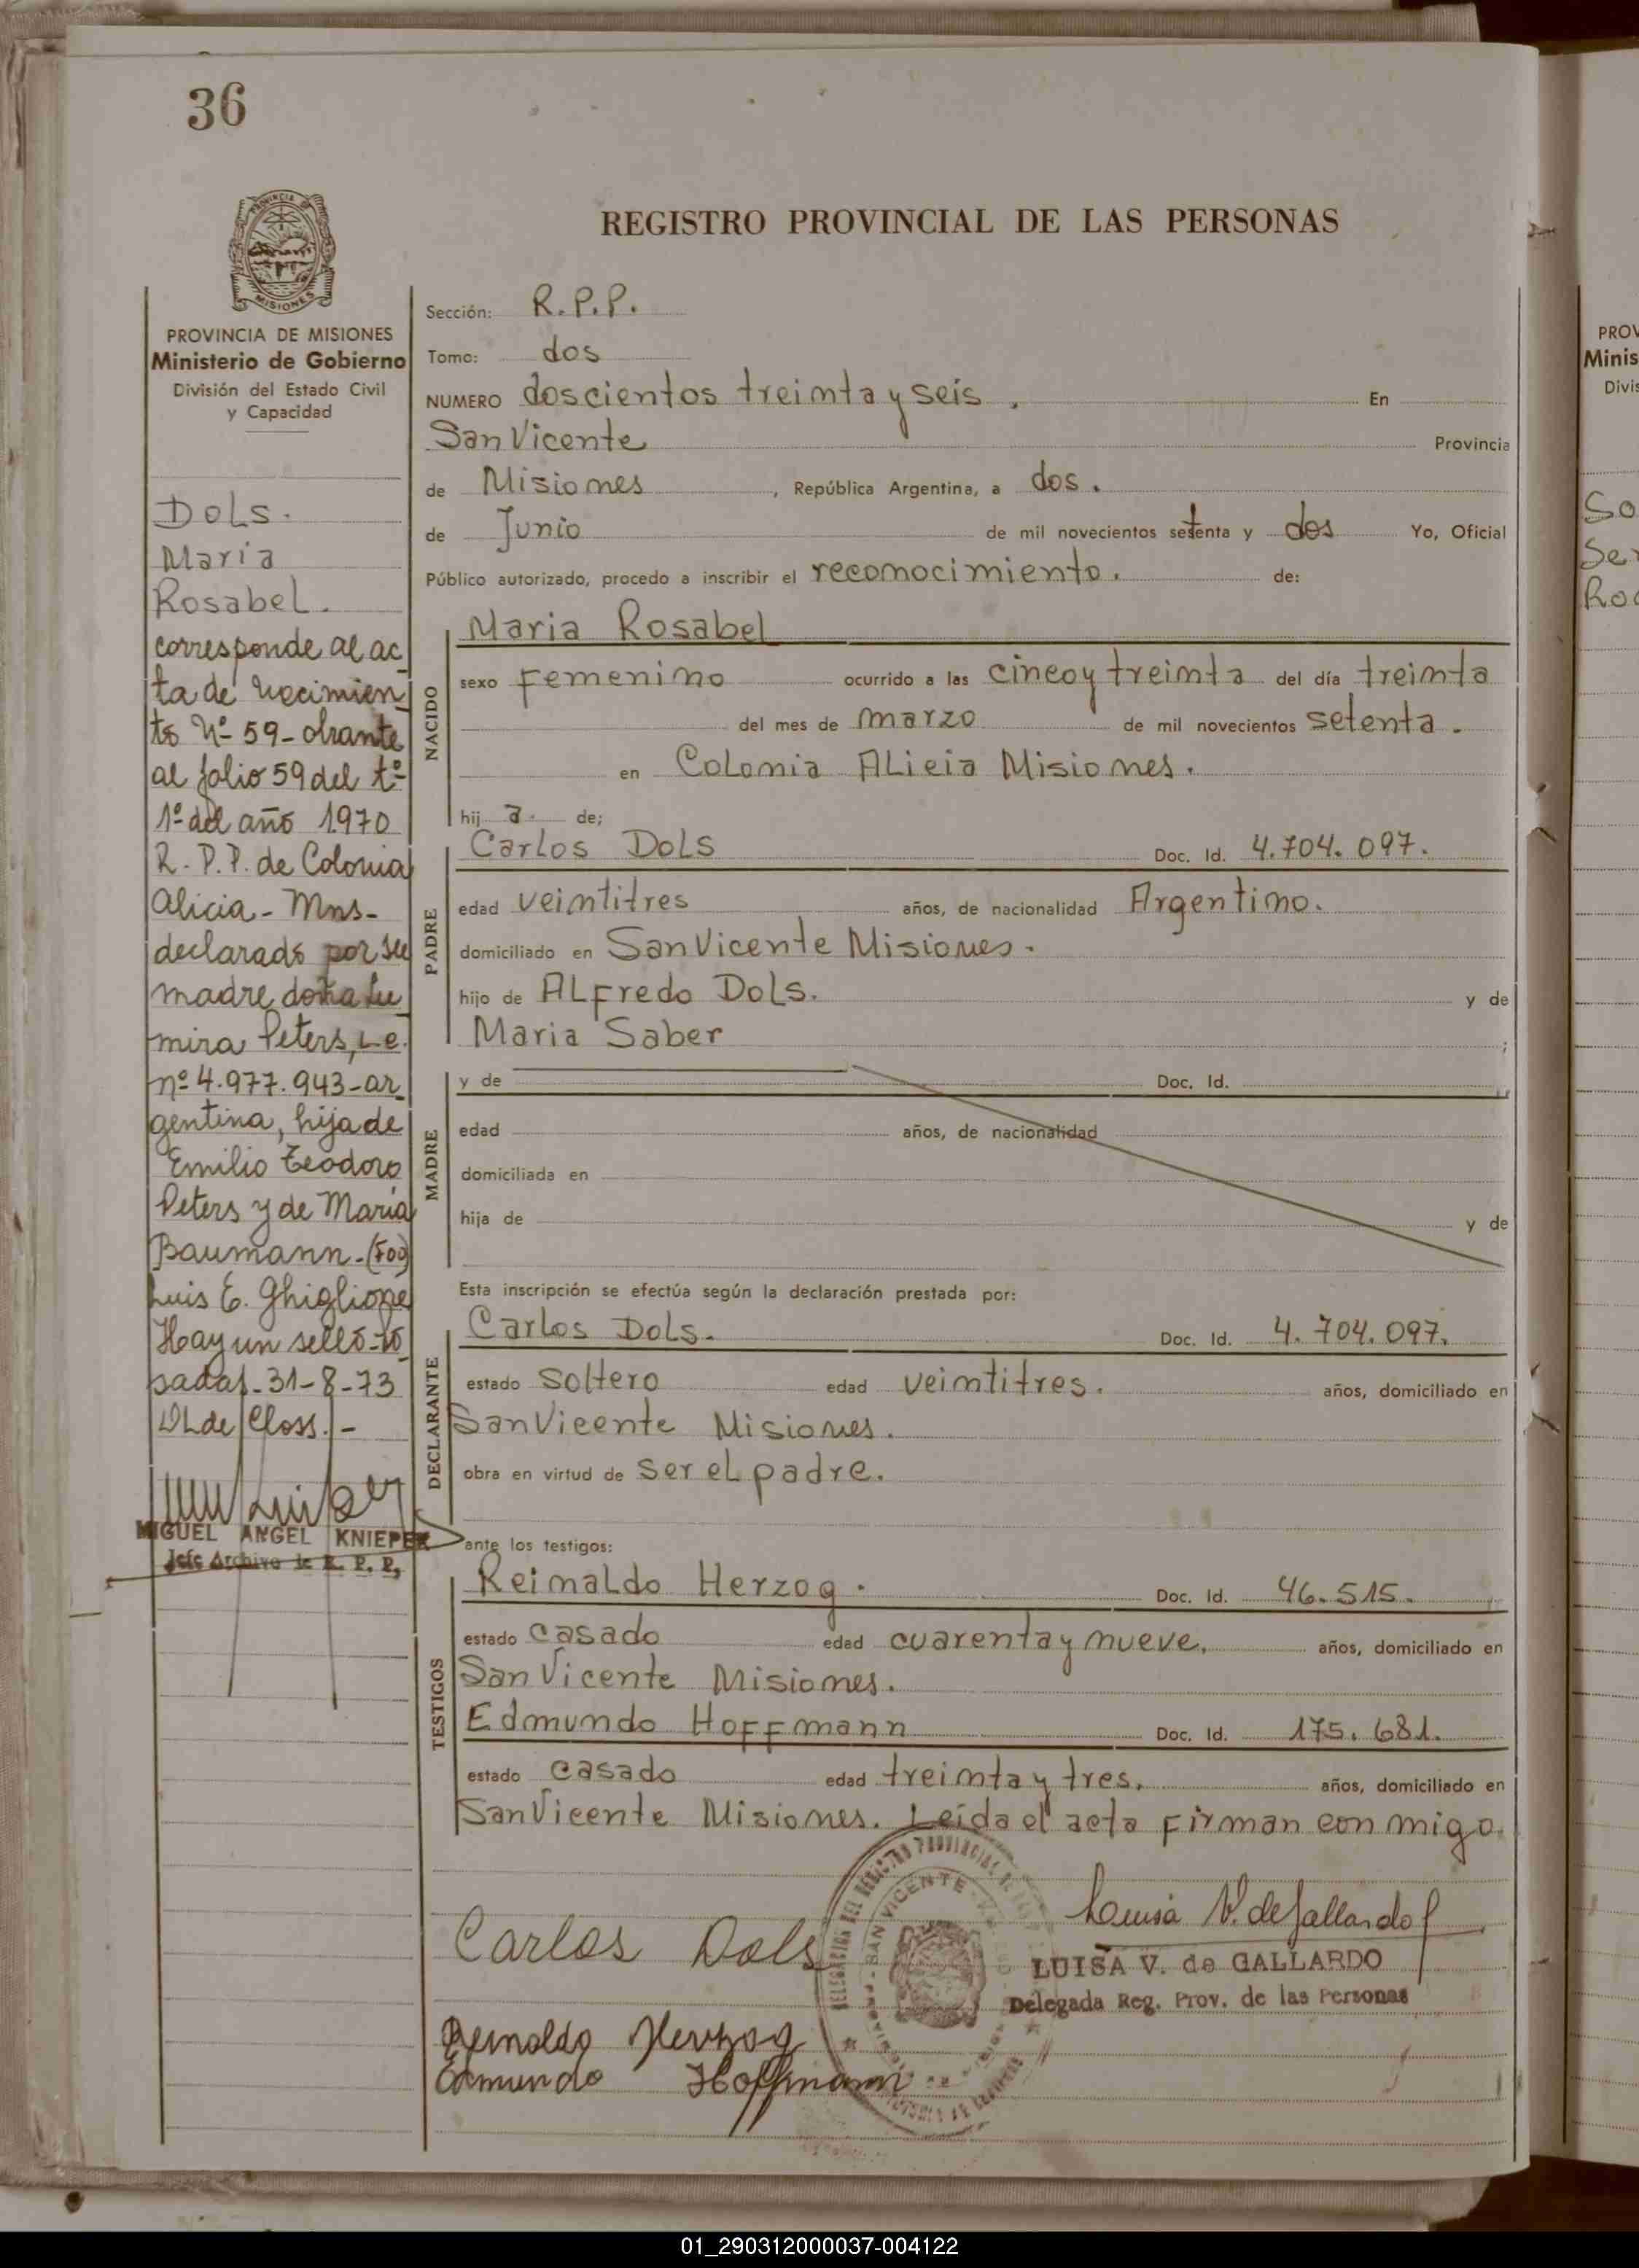 36
REGISTRO PROVINCIAL DE LAS PERSONAS
MISIONES
PROVINCIA DE MISIONES
Ministerio de Gobierno
División del Estado Civil
y Capacidad
DOLS.
Maria
Rosabel.
corresponde al ac
ta de Nacimien
to Nº 59- obrante
al folio 59 del tº
1º del año 1970
R.P.P. de Colonia
Alicia - Mns-
declarado por su
madre doña Lu
mira Peters, L.e.
nº 4.977.943- ar
gentina, hija de
Emilio Teodoro
Peters y de María
Baumann.-(Fdo)
Luis E. Ghiglione
Hay un sello-Po
sadas-31-8-73
de Closs.-
MIGUEL ANGEL KNIEPER
Jefe Archivo de R. P. P.
Sección: R.P.P.
Tomo: dos
NUMERO doscientos treinta y seis. En
San Vicente Provincia
de Misiones, República Argentina, a dos.
de Junio de mil novecientos setenta y dos Yo, Oficial
Público autorizado, procedo a inscribir el reconocimiento. de:
NACIDO
Maria Rosabel
sexo Femenino ocurrido a las cinco y treinta del día treinta
del mes de marzo de mil novecientos setenta.
en Colonia Alicia Misiones.
hij a de;
PADRE
Carlos Dols Doc. Id. 4.704.097.
edad veintitres años, de nacionalidad Argentino.
domiciliado en San Vicente Misiones.
hijo de Alfredo Dols. y de
Maria Saber ;
MADRE
y de Doc. Id.
edad años, de nacionalidad
domiciliada en
hija de y de
Esta inscripción se efectúa según la declaración prestada por:
DECLARANTE
Carlos Dols. Doc. Id. 4.704.097.
estado soltero edad veintitres. años, domiciliado en
San Vicente Misiones.
obra en virtud de ser el padre.
ante los testigos:
TESTIGOS
Reinaldo Herzog. Doc. Id. 46.515.
estado casado edad cuarenta y nueve. años, domiciliado en
San Vicente Misiones.
Edmundo Hoffmann Doc. Id. 175.681.
estado casado edad treinta y tres. años, domiciliado en
San Vicente Misiones. Leída el acta firman conmigo.
Carlos Dols
Luisa V. de Gallardo
LUISA V. de GALLARDO
Delegada Reg. Prov. de las Personas
SAN VICENTE
Reinoldo Herzog
Edmundo Hoffmann
PROV
Minis
Divis
So
Ser
Ro
01_290312000037-004122